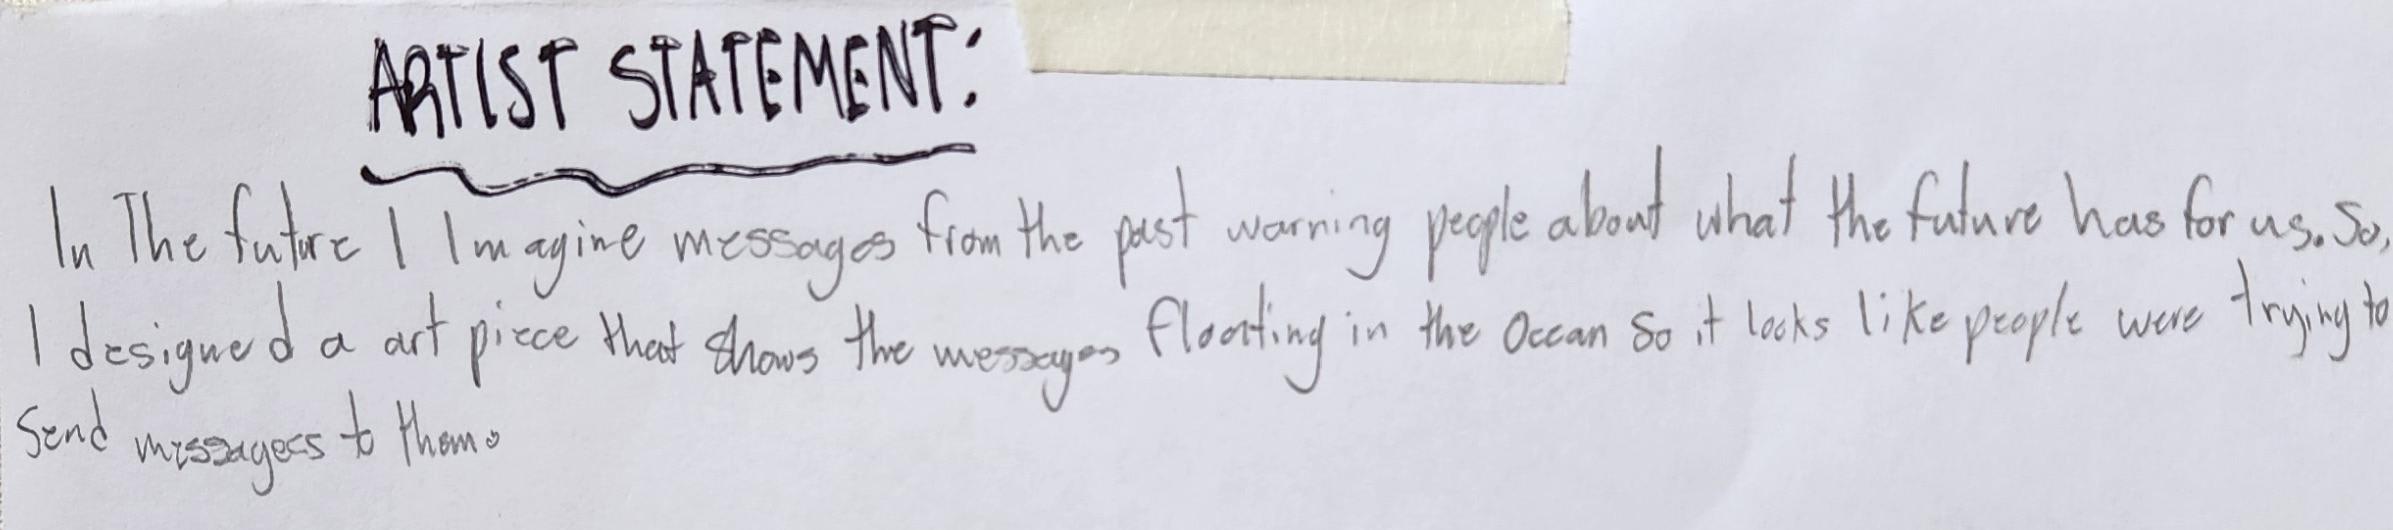 ARTIST STATEMENT:
In The future I Imagine messages from the past warning people about what the future has for us. So,
I designed a art piece that shows the messages floating in the Ocean So it looks like people were trying to
Send messagees to them.